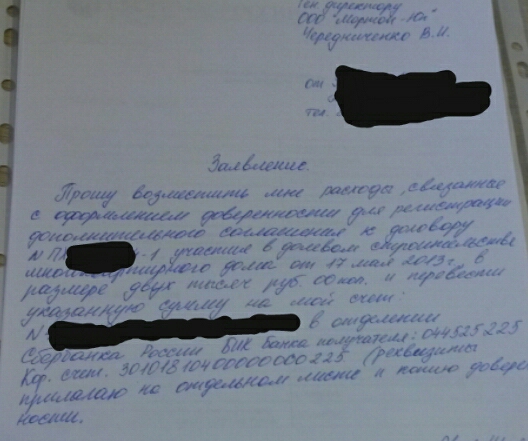 Ген. директору
ООО "Мортон-Юг"
Чередниченко В.И.
от
тел.
Заявление.
Прошу возместить мне расходы, связанные
с оформлением доверенности для регистрации
дополнительного соглашения к договору
N ПК -1 участия в долевом строительстве
многоквартирного дома от 17 мая 2013г. в
размере двух тысяч руб. 00 коп. и перевести
указанную сумму на мой счет:
N в отделении
Сбербанка России БИК банка получателя: 044525225
Кор. счет. 30101810400000000225 (реквизиты
прилагаю на отдельном листе и копию доверен
ности.